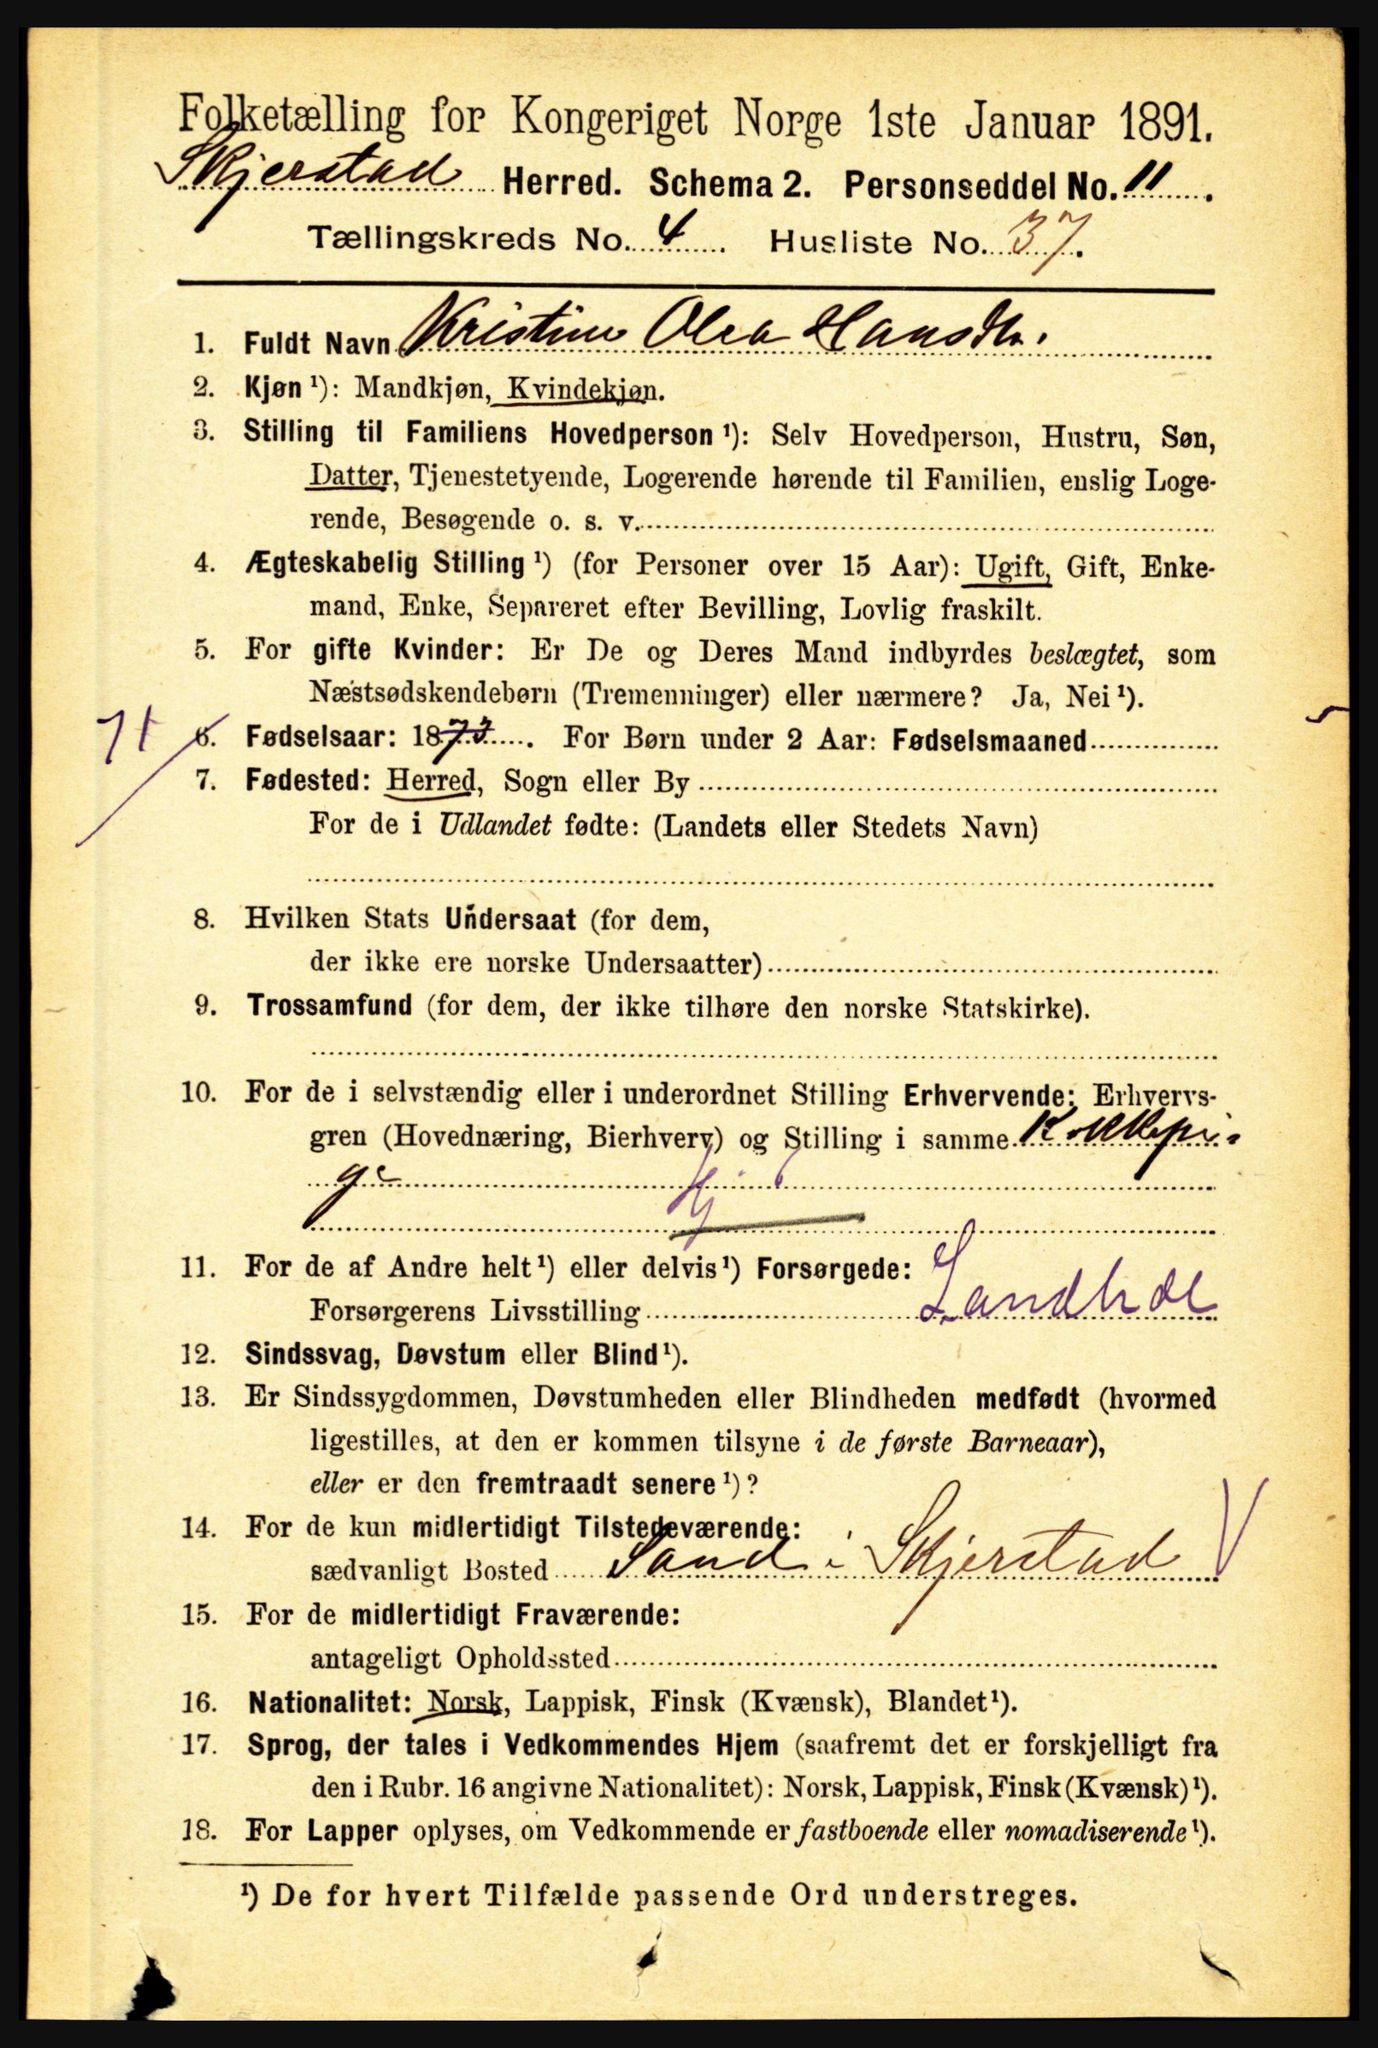 Folketælling for Kongeriget Norge 1ste Januar 1891.
Skjerstad Herred. Schema 2. Personseddel No. 11.
Tællingskreds No. 4. Husliste No. 37.
1. Fuldt Navn Kristine Olea Hansdtr.
2. Kjøn ¹): Mandkjøn, Kvindekjøn.
3. Stilling til Familiens Hovedperson ¹): Selv Hovedperson, Hustru, Søn,
Datter, Tjenestetyende, Logerende hørende til Familien, enslig Loge-
rende, Besøgende o. s. v.
4. Ægteskabelig Stilling ¹) (for Personer over 15 Aar): Ugift, Gift, Enke-
mand, Enke, Separeret efter Bevilling, Lovlig fraskilt.
5. For gifte Kvinder: Er De og Deres Mand indbyrdes beslægtet, som
Næstsødskendebørn (Tremenninger) eller nærmere? Ja, Nei ¹).
71 6. Fødselsaar: 1873. For Børn under 2 Aar: Fødselsmaaned
7. Fødested: Herred, Sogn eller By
For de i Udlandet fødte: (Landets eller Stedets Navn)
8. Hvilken Stats Undersaat (for dem,
der ikke ere norske Undersaatter)
9. Trossamfund (for dem, der ikke tilhøre den norske Statskirke).
10. For de i selvstændig eller i underordnet Stilling Erhvervende: Erhvervs-
gren (Hovednæring, Bierhverv) og Stilling i samme Kokkepi-
ge
Hj
11. For de af Andre helt ¹) eller delvis ¹) Forsørgede:
Forsørgerens Livsstilling
12. Sindssvag, Døvstum eller Blind ¹).
13. Er Sindssygdommen, Døvstumheden eller Blindheden medfødt (hvormed
ligestilles, at den er kommen tilsyne i de første Barneaar),
eller er den fremtraadt senere ¹)?
14. For de kun midlertidigt Tilstedeværende:
sædvanligt Bosted Sand i Skjerstad V
15. For de midlertidigt Fraværende:
antageligt Opholdssted
16. Nationalitet: Norsk, Lappisk, Finsk (Kvænsk), Blandet ¹).
17. Sprog, der tales i Vedkommendes Hjem (saafremt det er forskjelligt fra
den i Rubr. 16 angivne Nationalitet): Norsk, Lappisk, Finsk (Kvænsk) ¹).
18. For Lapper oplyses, om Vedkommende er fastboende eller nomadiserende ¹).
¹) De for hvert Tilfælde passende Ord understreges.